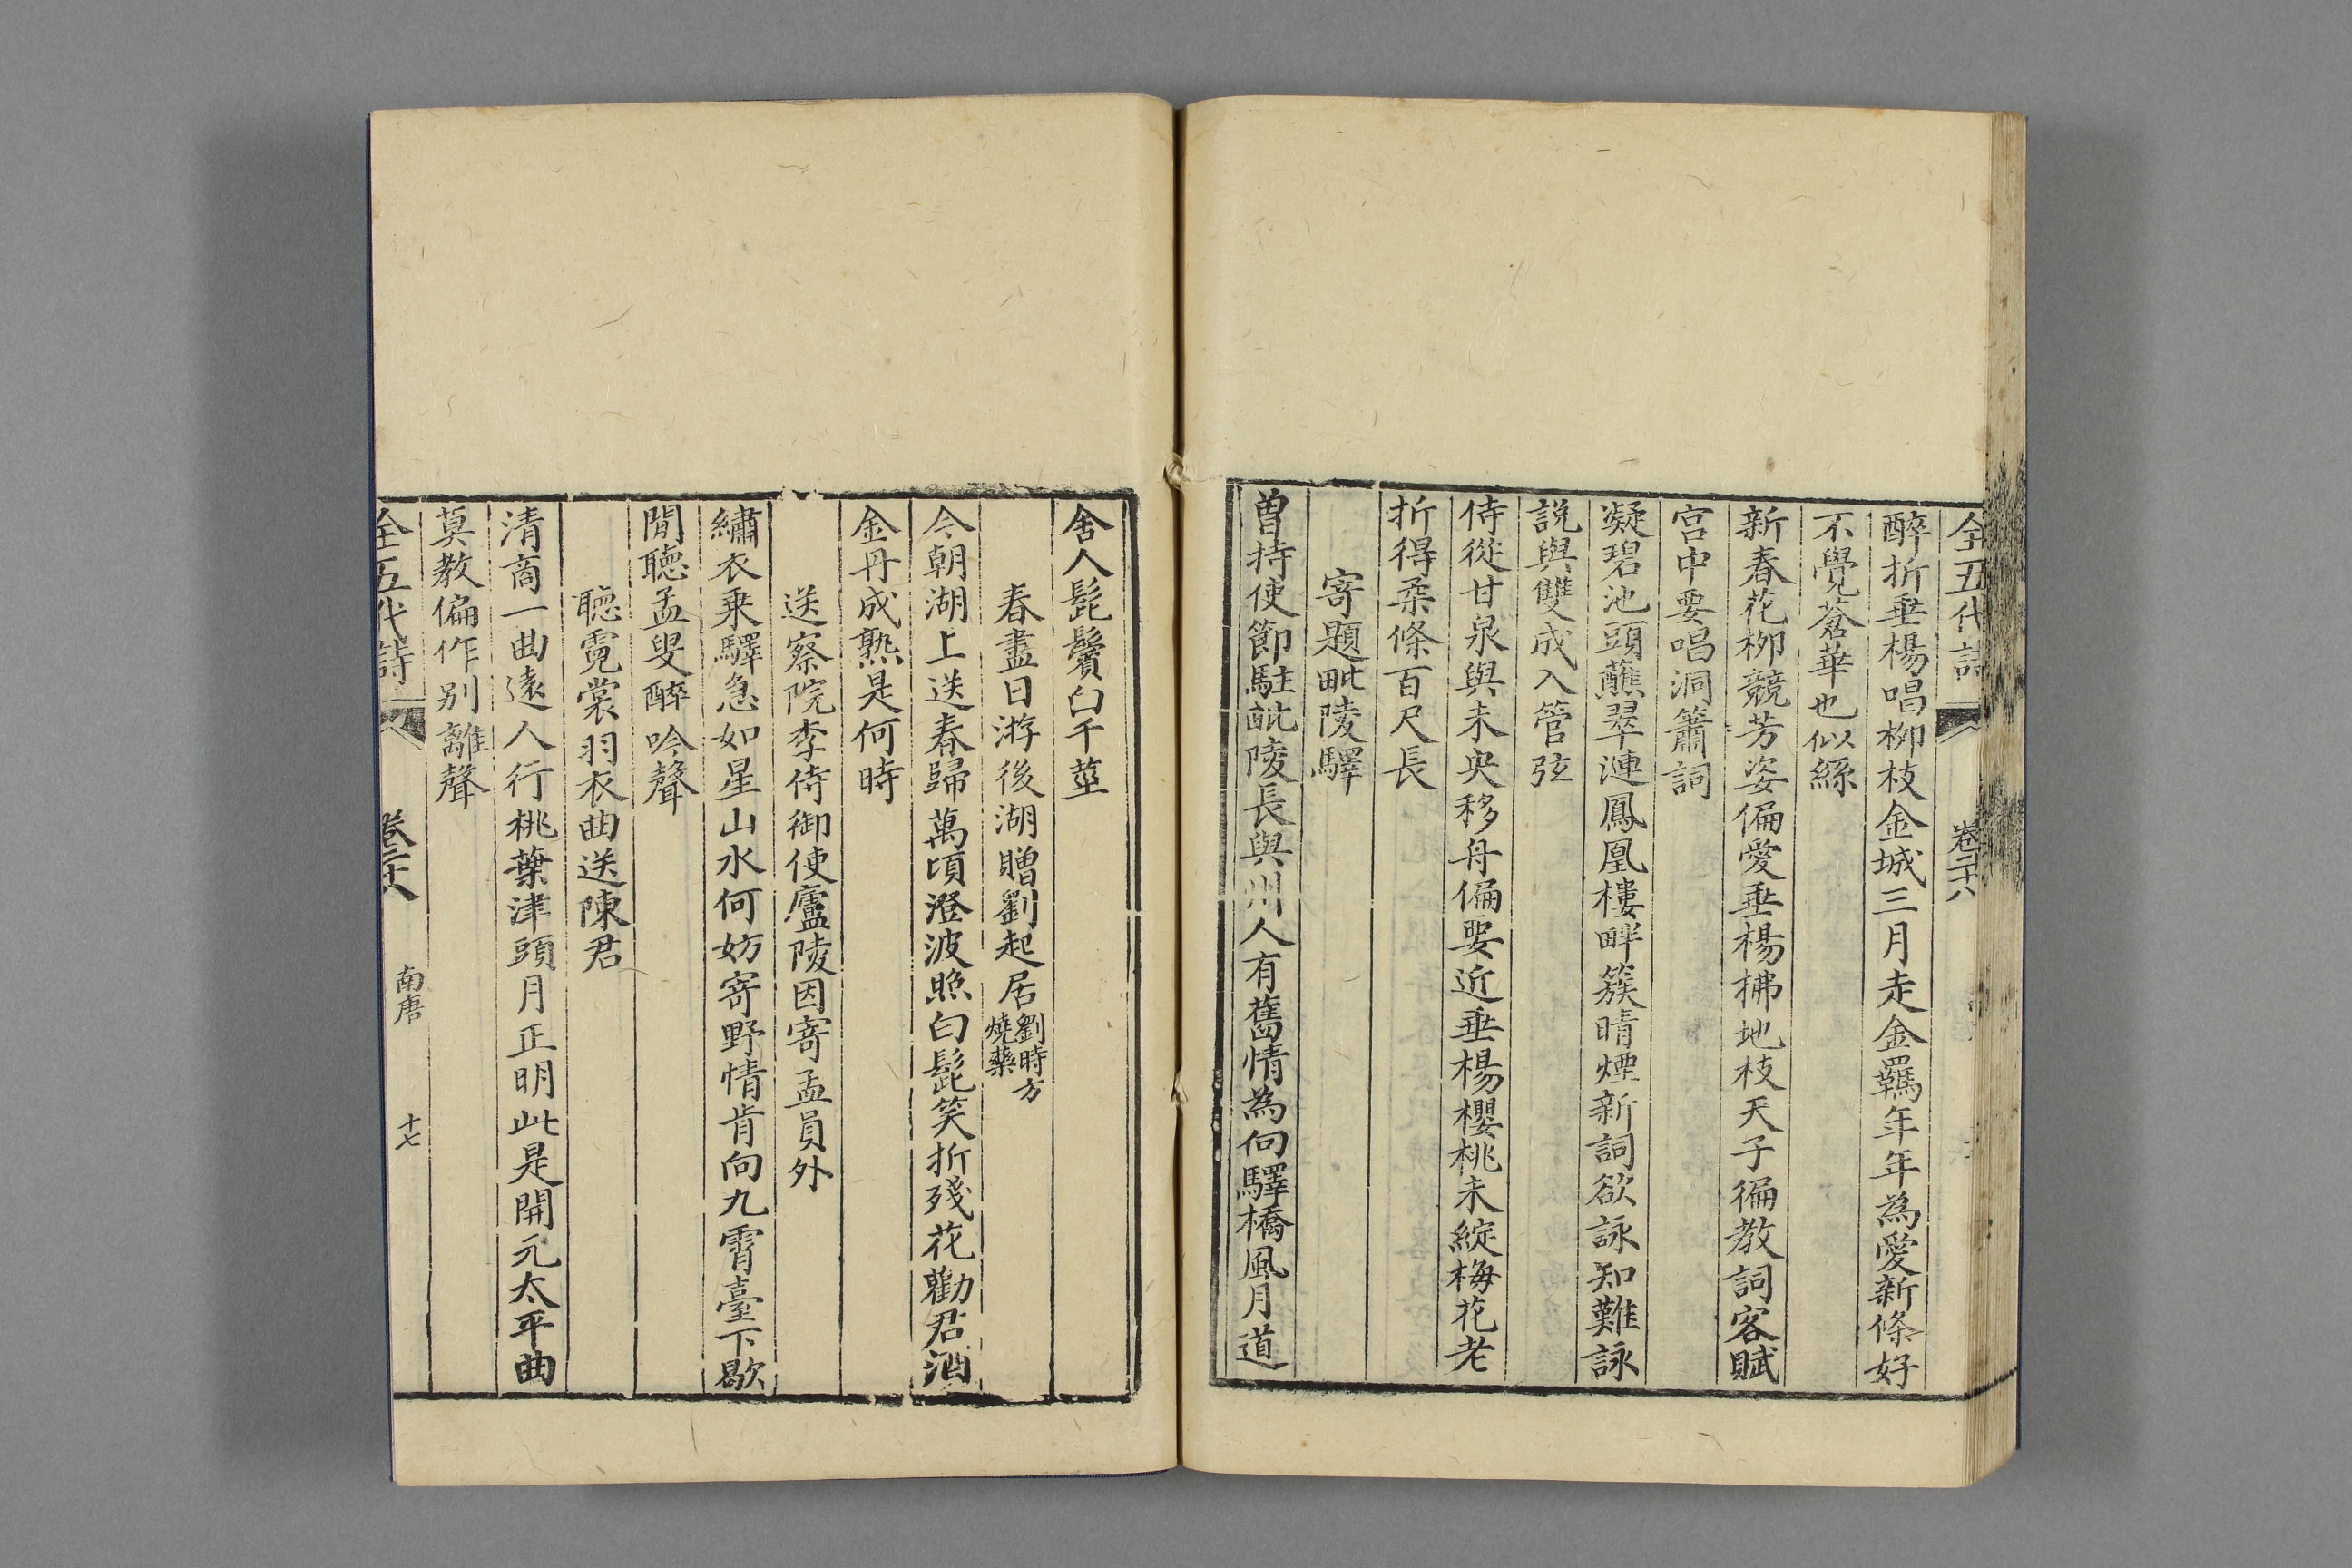 全五代詩 卷二十八
醉折垂楊唱柳枝金城三月走金羈年年為愛新條好
不覺蒼華也似絲
新春花柳競芳姿偏愛垂楊拂地枝天子徧教詞客賦
宮中要唱洞簫詞
凝碧池頭蘸翠漣鳳凰樓畔簇晴煙新詞欲詠知難詠
説與雙成入管弦
侍從甘泉與未央移舟偏要近垂楊櫻桃未綻梅花老
折得柔條百尺長
寄題毗陵驛
曾持使節駐毗陵長與州人有舊情為向驛橋風月道
舍人髭鬢白千莖
春盡日游後湖贈劉起居劉時方燒藥
今朝湖上送春歸萬頃澄波照白髭笑折殘花勸君酒
金丹成熟是何時
送察院李侍御使廬陵因寄孟員外
繡衣乘驛急如星山水何妨寄野情肯向九霄臺下歇
閒聽孟叟醉吟聲
聽霓裳羽衣曲送陳君
清商一曲遠人行桃葉津頭月正明此是開元太平曲
莫教偏作别離聲
全五代詩 卷二十八 南唐 十七